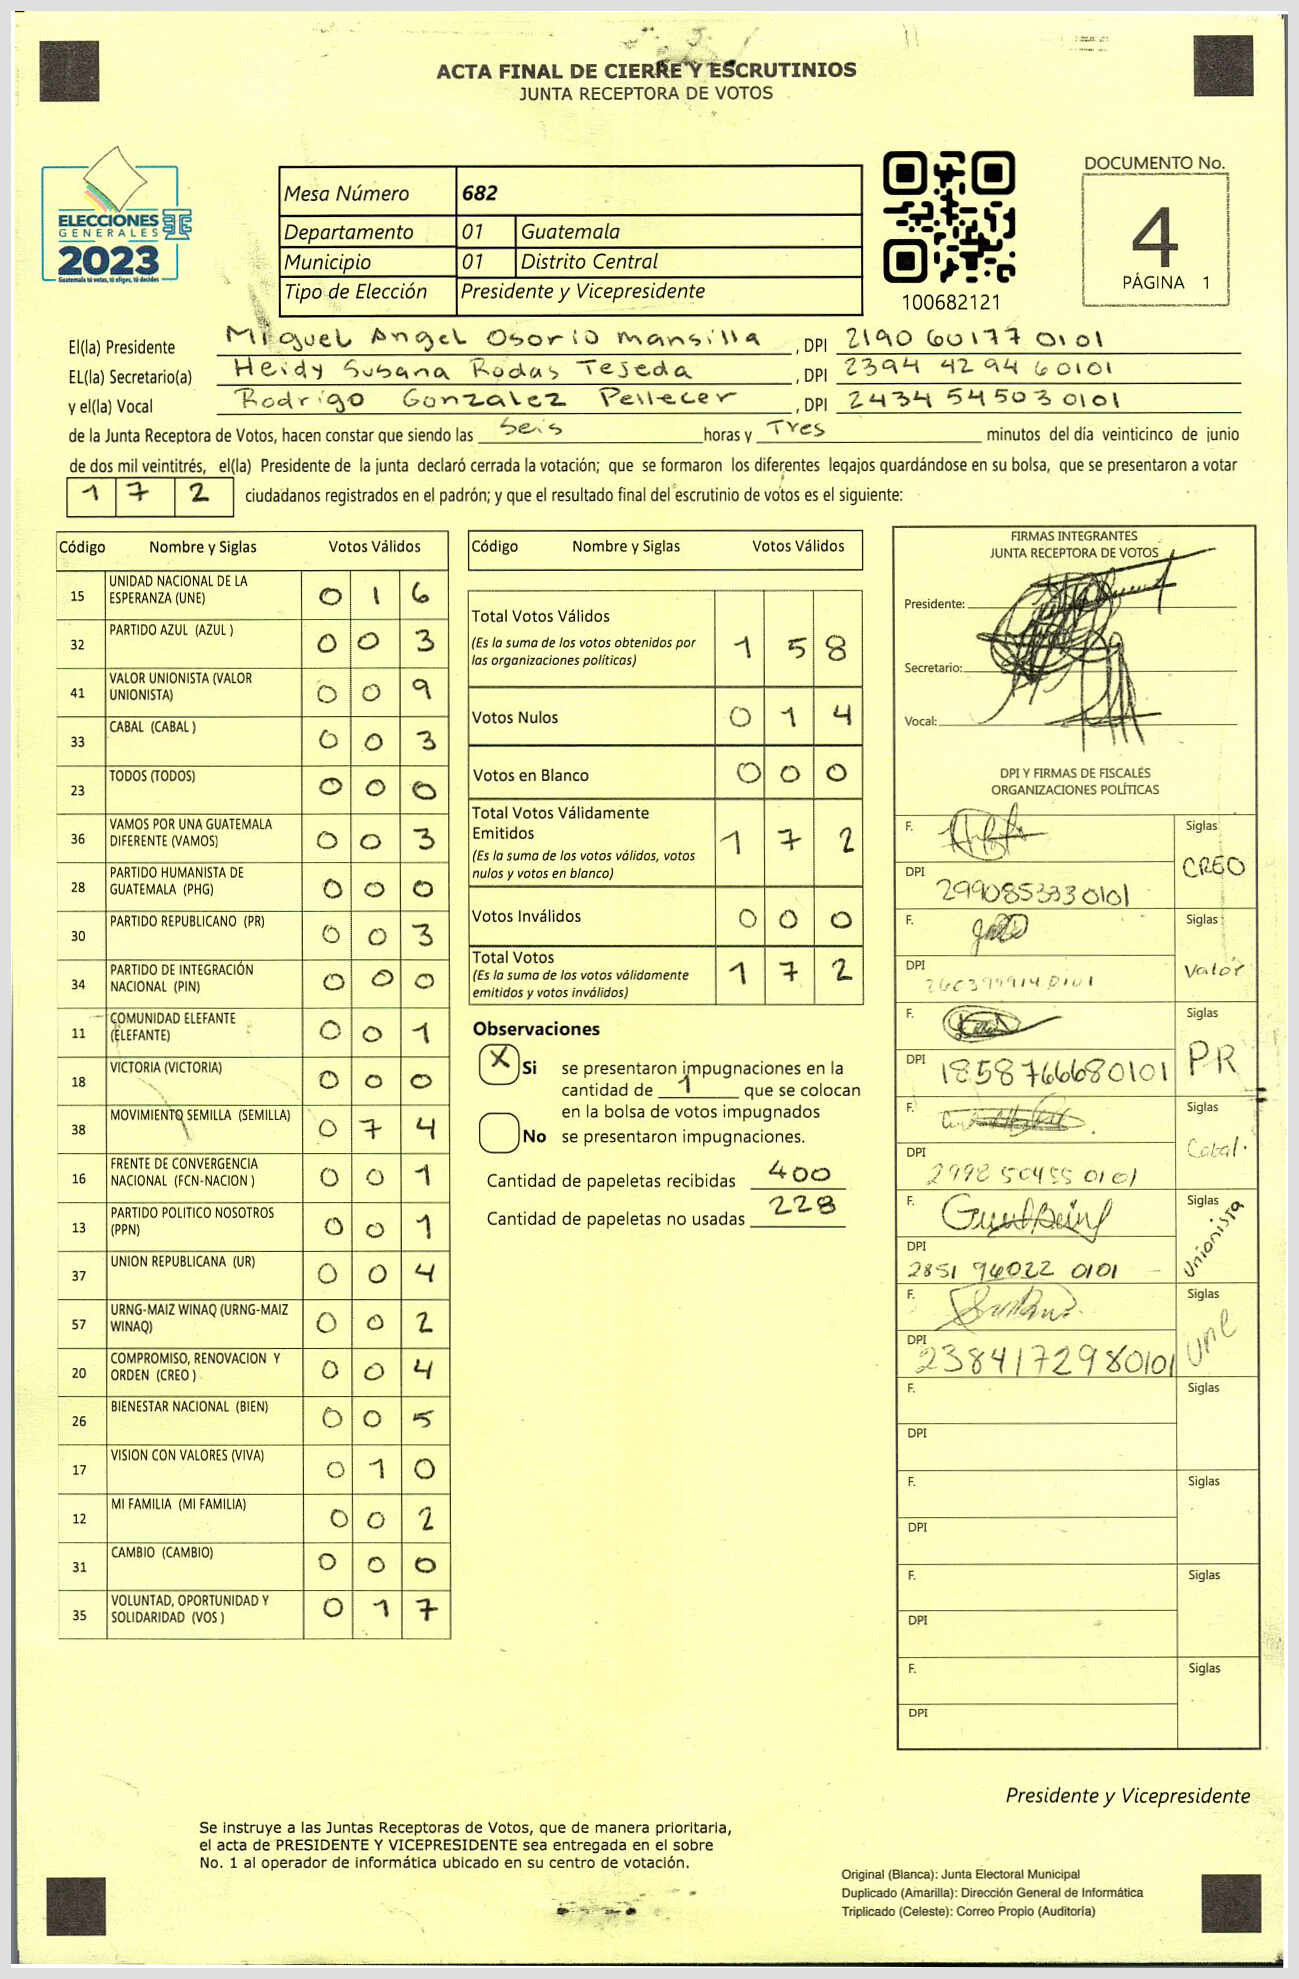 ACTA FINAL DE CIERRE Y ESCRUTINIOS
JUNTA RECEPTORA DE VOTOS
ELECCIONES
GENERALES
2023
Guatemala tú votas, tú eliges, tú decides
Mesa Número 682
Departamento 01 Guatemala
Municipio 01 Distrito Central
Tipo de Elección Presidente y Vicepresidente
100682121
DOCUMENTO No.
4
PÁGINA 1
El(la) Presidente Miguel Angel Osorio Mansilla , DPI 2190 60177 0101
EL(la) Secretario(a) Heidy Susana Rodas Tejeda , DPI 2394 4294 60101
y el(la) Vocal Rodrigo Gonzalez Pellecer , DPI 2434 54503 0101
de la Junta Receptora de Votos, hacen constar que siendo las Seis horas y Tres minutos del día veinticinco de junio
de dos mil veintitrés, el(la) Presidente de la junta declaró cerrada la votación; que se formaron los diferentes legajos guardándose en su bolsa, que se presentaron a votar
1 7 2 ciudadanos registrados en el padrón; y que el resultado final del escrutinio de votos es el siguiente:
Código Nombre y Siglas Votos Válidos
15 UNIDAD NACIONAL DE LA ESPERANZA (UNE) 0 1 6
32 PARTIDO AZUL (AZUL ) 0 0 3
41 VALOR UNIONISTA (VALOR UNIONISTA) 0 0 9
33 CABAL (CABAL ) 0 0 3
23 TODOS (TODOS) 0 0 0
36 VAMOS POR UNA GUATEMALA DIFERENTE (VAMOS) 0 0 3
28 PARTIDO HUMANISTA DE GUATEMALA (PHG) 0 0 0
30 PARTIDO REPUBLICANO (PR) 0 0 3
34 PARTIDO DE INTEGRACIÓN NACIONAL (PIN) 0 0 0
11 COMUNIDAD ELEFANTE (ELEFANTE) 0 0 1
18 VICTORIA (VICTORIA) 0 0 0
38 MOVIMIENTO SEMILLA (SEMILLA) 0 7 4
16 FRENTE DE CONVERGENCIA NACIONAL (FCN-NACION ) 0 0 1
13 PARTIDO POLITICO NOSOTROS (PPN) 0 0 1
37 UNION REPUBLICANA (UR) 0 0 4
57 URNG-MAIZ WINAQ (URNG-MAIZ WINAQ) 0 0 2
20 COMPROMISO, RENOVACION Y ORDEN (CREO ) 0 0 4
26 BIENESTAR NACIONAL (BIEN) 0 0 5
17 VISION CON VALORES (VIVA) 0 1 0
12 MI FAMILIA (MI FAMILIA) 0 0 2
31 CAMBIO (CAMBIO) 0 0 0
35 VOLUNTAD, OPORTUNIDAD Y SOLIDARIDAD (VOS ) 0 1 7
Código Nombre y Siglas Votos Válidos
Total Votos Válidos
(Es la suma de los votos obtenidos por
las organizaciones políticas) 1 5 8
Votos Nulos 0 1 4
Votos en Blanco 0 0 0
Total Votos Válidamente
Emitidos
(Es la suma de los votos válidos, votos
nulos y votos en blanco) 1 7 2
Votos Inválidos 0 0 0
Total Votos
(Es la suma de los votos válidamente
emitidos y votos inválidos) 1 7 2
Observaciones
X Si se presentaron impugnaciones en la
cantidad de 1 que se colocan
en la bolsa de votos impugnados
No se presentaron impugnaciones.
Cantidad de papeletas recibidas 400
Cantidad de papeletas no usadas 228
FIRMAS INTEGRANTES
JUNTA RECEPTORA DE VOTOS
Presidente:
Secretario:
Vocal:
DPI Y FIRMAS DE FISCALES
ORGANIZACIONES POLÍTICAS
F. Siglas
CREO
DPI
F. Siglas
Valor
DPI
F. Siglas
PR
DPI 1858766680101
F. Siglas
Cabal.
DPI
2998 50455 0101
F. Siglas
Unionista
DPI
2851 96022 0101
F. Siglas
une
DPI
2384172980101
F. Siglas
DPI
F. Siglas
DPI
F. Siglas
DPI
F. Siglas
DPI
Presidente y Vicepresidente
Se instruye a las Juntas Receptoras de Votos, que de manera prioritaria,
el acta de PRESIDENTE Y VICEPRESIDENTE sea entregada en el sobre
No. 1 al operador de informática ubicado en su centro de votación.
Original (Blanca): Junta Electoral Municipal
Duplicado (Amarilla): Dirección General de Informática
Triplicado (Celeste): Correo Propio (Auditoría)